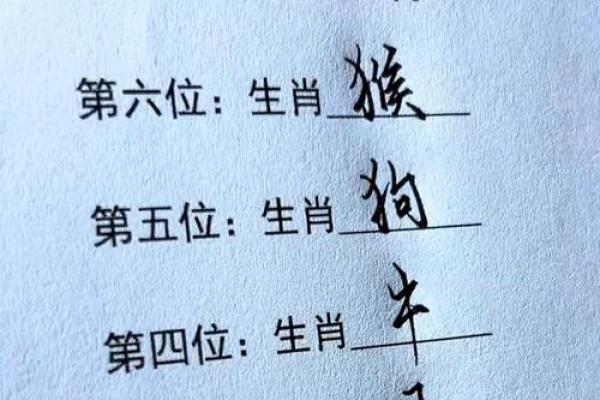 第六位：生肖猴
第五位：生肖狗
第四位：生肖牛